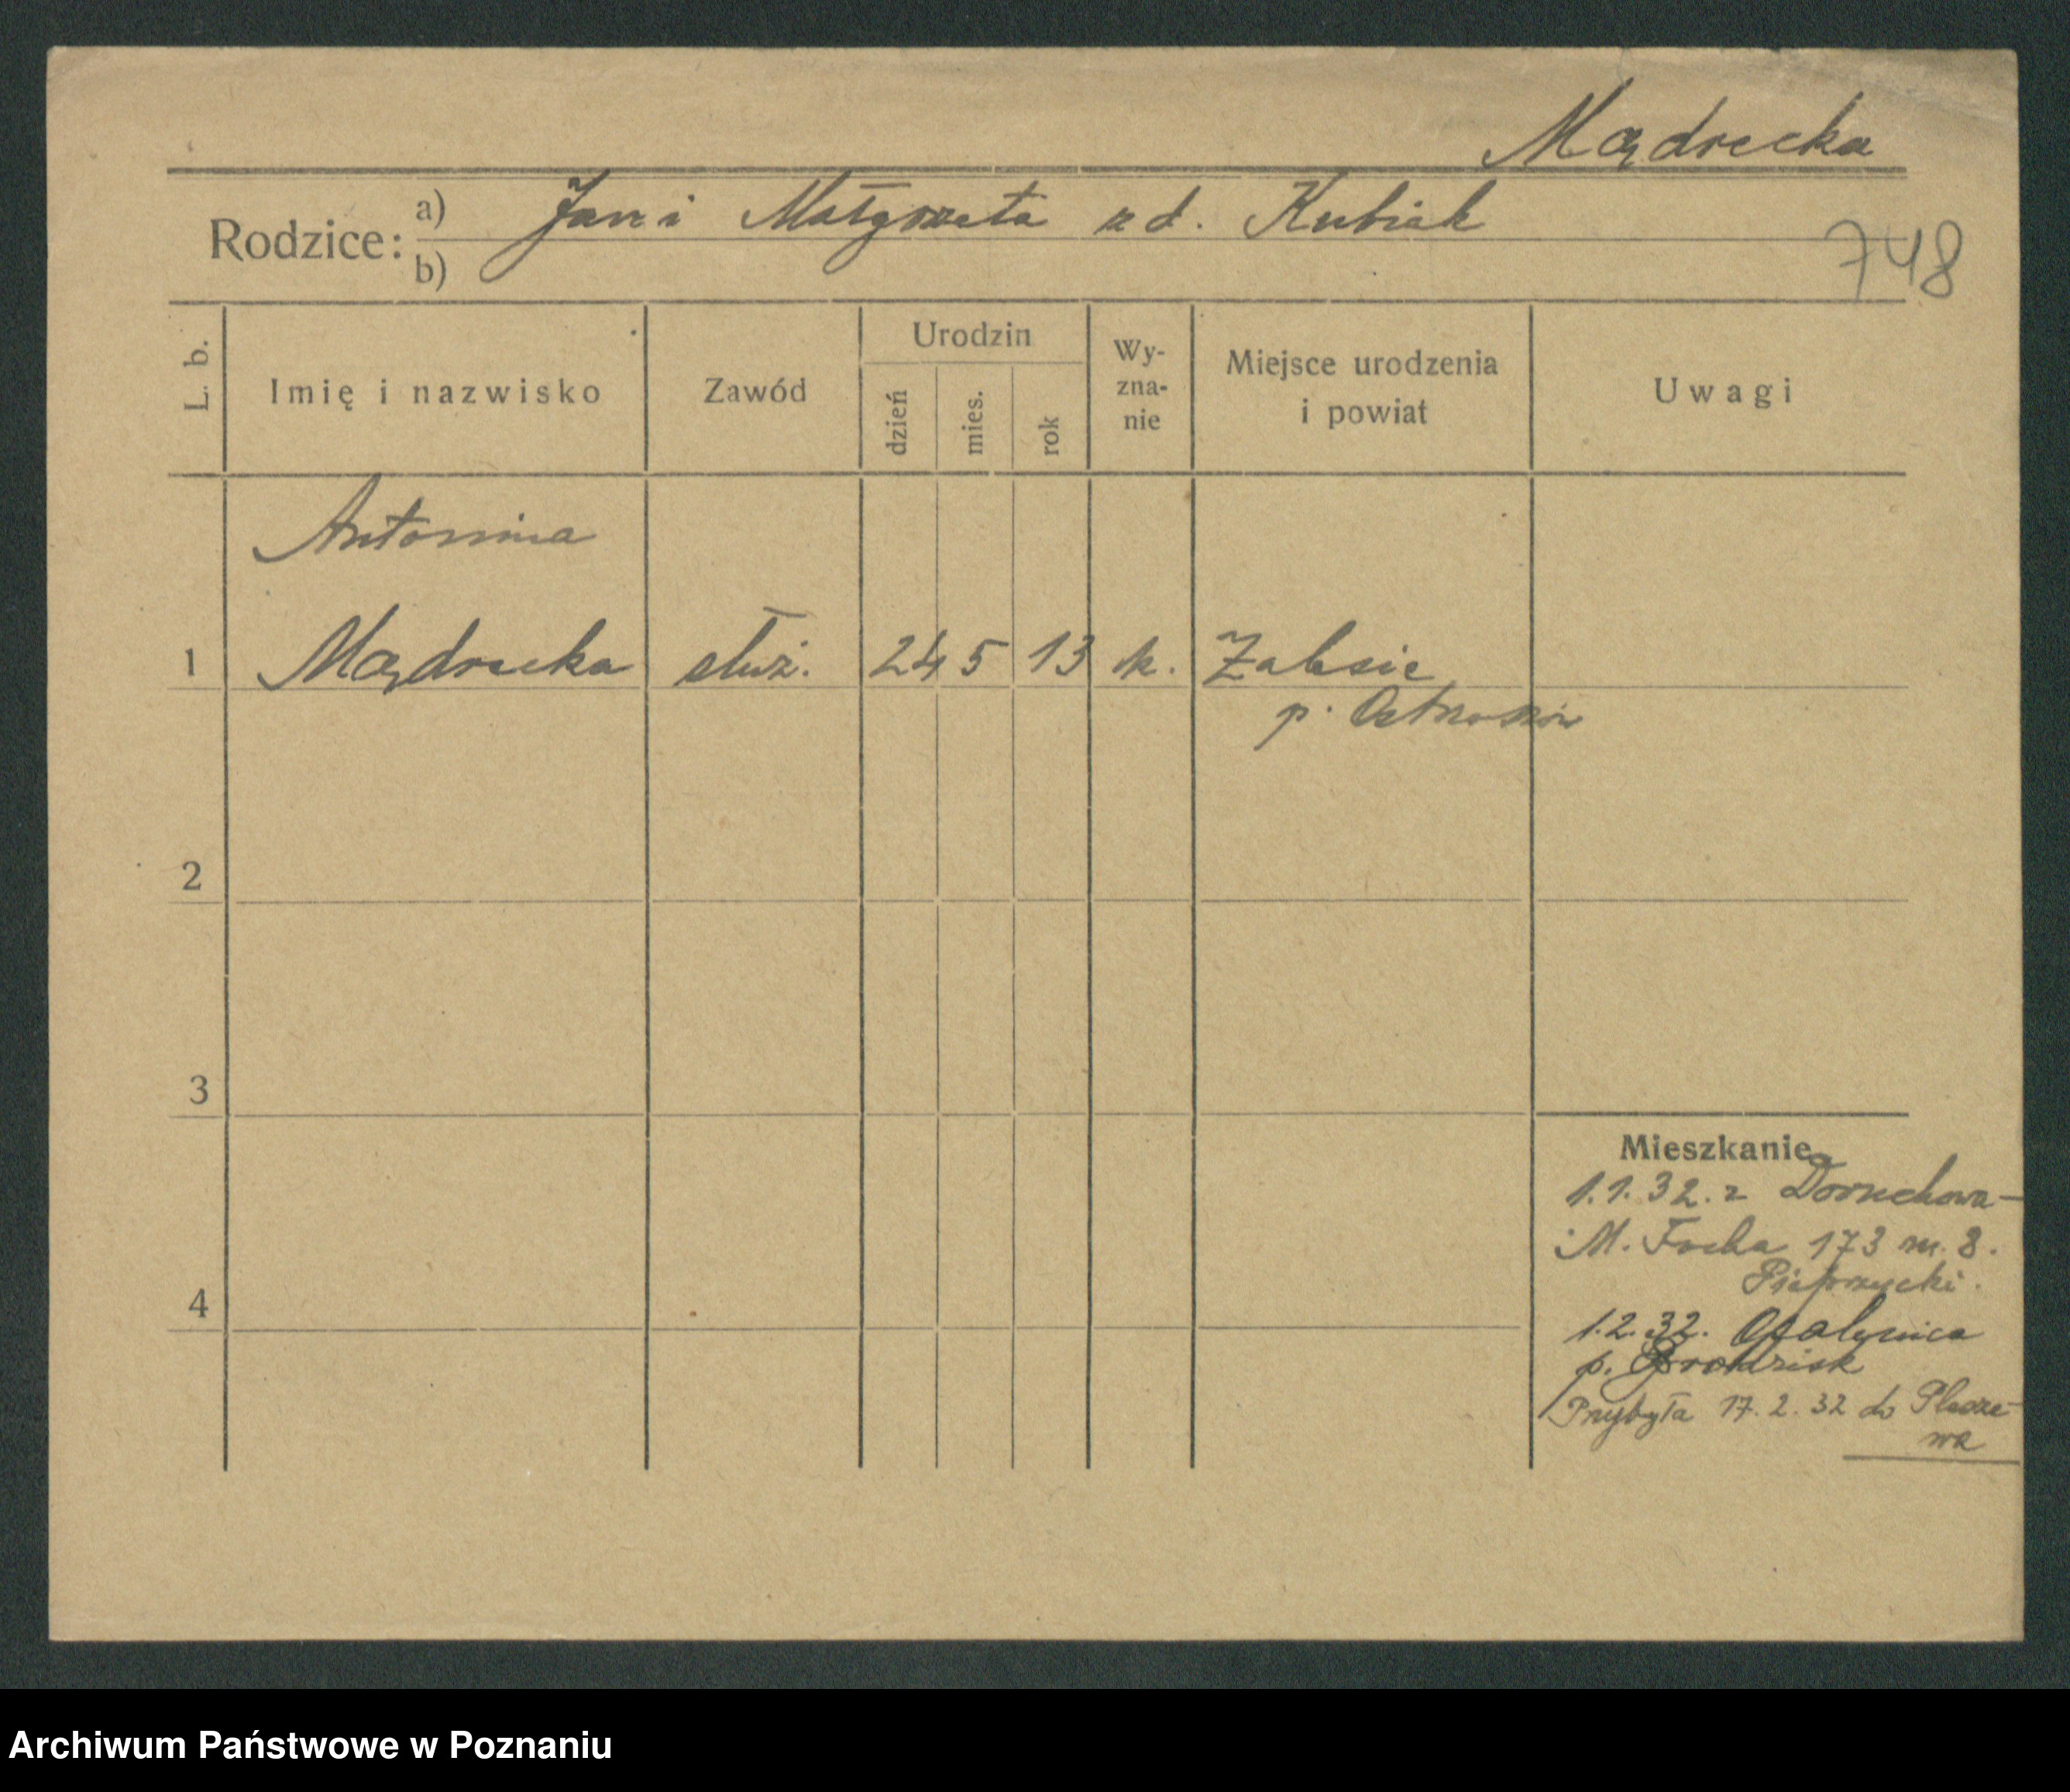 Mądrecka
Rodzice: a) Jan i Małgorzata z d. Kubiak
b)
748
L. b. Imię i nazwisko Zawód Urodzin dzień mies. rok Wy- zna- nie Miejsce urodzenia i powiat Uwagi
Antonina
1 Mądrecka służ. 24 5 13 k. Zalesie
p. Ostrzeszów
2
3
Mieszkanie
1.1.32. z Doruchowa—
M. Focha 173 m. 8.
Pieprzycki.
4
1.2.32. Opalenica
p. Grodzisk
Przybyła 17.2.32 do Plesze-
wa
Archiwum Państwowe w Poznaniu